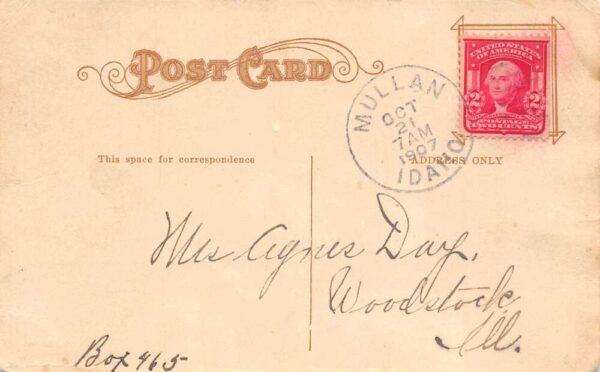 POST CARD
UNITED STATES
OF AMERICA
2 2
POSTAGE
TWO CENTS
MULLAN
OCT
21
7 AM
1907
IDAHO
This space for correspondence
ADDRESS ONLY
Mrs Agnes Day,
Woodstock
Ill.
Box 465